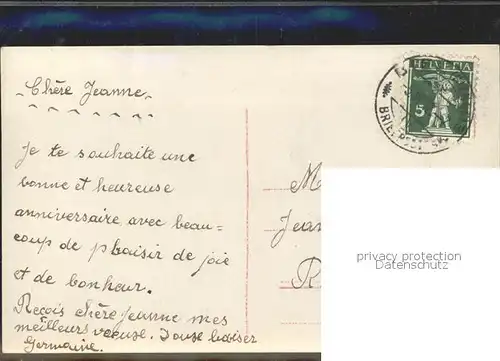 Chère Jeanne
Je te souhaite une
bonne et heureuse
anniversaire avec beau=
coup de plaisir de joie
et de bonheur.
Reçois chère Jeanne mes
meilleurs voeuse. Douse baiser
Germaine.
HELVETIA
5
BRIEF
M
Jean
R
privacy protection
Datenschutz